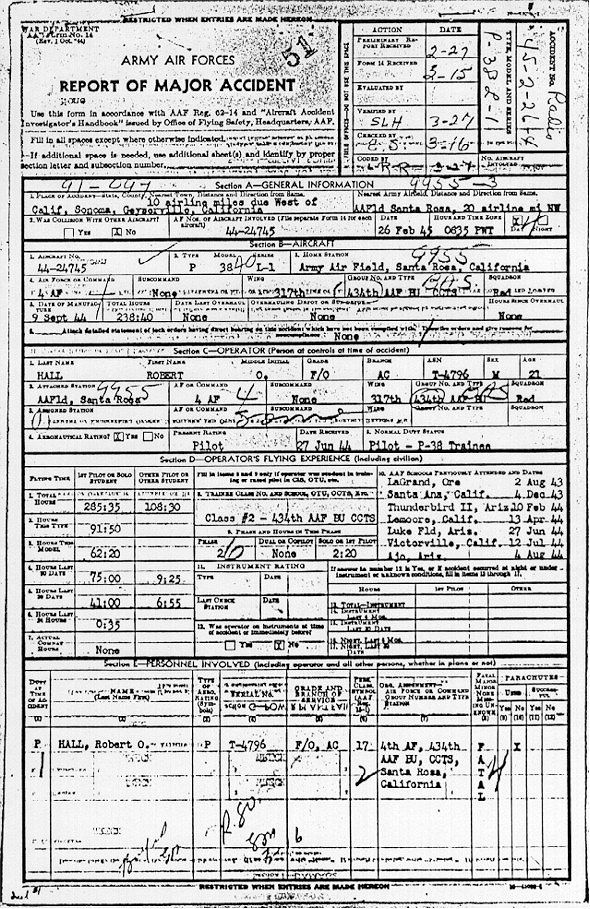 RESTRICTED WHEN ENTRIES ARE MADE HEREON
WAR DEPARTMENT
AAF Form No. 14
(Rev. 1 Oct. '44)
51
ARMY AIR FORCES
REPORT OF MAJOR ACCIDENT
Use this form in accordance with AAF Reg. 62-14 and "Aircraft Accident
Investigator's Handbook" issued by Office of Flying Safety, Headquarters, AAF.
Fill in all spaces except where otherwise indicated.
If additional space is needed, use additional sheet(s) and identify by proper
section letter and subsection number.
ACTION DATE
PRELIMINARY REPORT RECEIVED 2-27
FORM 14 RECEIVED 3-15
EVALUATED BY
VERIFIED BY SLH 3-27
CHECKED BY 3-16
CODED BY
NO. AIRCRAFT INVOLVED
ACCIDENT NO.
TYPE, MODEL, AND SERIES
P-38 L-1
Section A—GENERAL INFORMATION
1. PLACE OF ACCIDENT—State, County, Nearest Town, Distance and Direction from Same.
10 airling miles due West of
Calif, Sonoma, Geyserville, California
Nearest Army Airfield, Distance and Direction from Same.
9955-3
AAFld Santa Rosa, 20 airline mi NW
2. WAS COLLISION WITH OTHER AIRCRAFT?
Yes X No
AF NOS. OF AIRCRAFT INVOLVED (File separate Form 14 for each aircraft)
44-24745
DATE
26 Feb 45
HOUR AND TIME ZONE
0635 PWT
Section B—AIRCRAFT
1. AIRCRAFT NO.
44-24745
2. TYPE MODEL SERIES
P 38 L-1
3. HOME STATION
9955
Army Air Field, Santa Rosa, California
4. AIR FORCE OR COMMAND
4 AF
SUBCOMMAND
None
WING
317th
GROUP NO. AND TYPE
434th AAF BU CCTS
SQUADRON
Red
5. DATE OF MANUFACTURE
9 Sept 44
TOTAL HOURS
238:40
DATE LAST OVERHAUL
None
OVERHAULING DEPOT OR SUBDEPOT
None
HOURS SINCE OVERHAUL
None
6. Attach detailed statement of tech orders having direct bearing on this accident which have not been complied with. Tech orders and give reasons for
None
Section C—OPERATOR (Person at controls at time of accident)
1. LAST NAME FIRST NAME MIDDLE INITIAL GRADE BRANCH ASN SEX AGE
HALL ROBERT O. F/O AC T-4796 M 21
2. ATTACHED STATION 9955
AAFld, Santa Rosa
AF OR COMMAND
4 AF
SUBCOMMAND
None
WING
317th
GROUP NO. AND TYPE
434th AAF BU
SQUADRON
Red
3. ASSIGNED STATION AF OR COMMAND SUBCOMMAND WING GROUP NO. AND TYPE SQUADRON
4. AERONAUTICAL RATING? X Yes No
PRESENT RATING
Pilot
DATE RECEIVED
27 Jun 44
5. NORMAL DUTY STATUS
Pilot - P-38 Trainee
Section D—OPERATOR'S FLYING EXPERIENCE (Including civilian)
FLYING TIME 1ST PILOT OR SOLO STUDENT OTHER PILOT OR OTHER STUDENT
1. TOTAL HOURS 285:35 108:30
2. HOURS THIS TYPE 91:50
3. HOURS THIS MODEL 62:20
4. HOURS LAST 90 DAYS 75:00 9:25
5. HOURS LAST 30 DAYS 41:00 6:55
6. HOURS LAST 24 HOURS 0:35
7. ACTUAL COMBAT HOURS None
Fill in items 8 and 9 only if operator was student in training or rated pilot in CSS, OTU, etc.
8. TRAINEE CLASS NO. AND SCHOOL, OTU, CCTS, ETC.
Class #2 - 434th AAF BU CCTS
9. PHASE AND HOURS IN THIS PHASE
PHASE DUAL OR COPILOT SOLO OR 1ST PILOT
2 None 2:20
10. AAF SCHOOLS PREVIOUSLY ATTENDED AND DATES
LaGrand, Ore 2 Aug 43
Santa Ana, Calif. 4 Dec 43
Thunderbird II, Ariz. 10 Feb 44
Lemoore, Calif. 13 Apr 44
Luke Fld, Aris. 27 Jun 44
Victorville, Calif. 12 Jul 44
Ajo, Aris. 4 Aug 44
11. INSTRUMENT RATING
TYPE DATE
LAST CHECK STATION DATE
12. Was operator on instruments at time of accident or immediately before?
Yes X No
If answer to number 12 is Yes, or if accident occurred at night or under instrument or unknown conditions, fill in items 13 through 17.
HOURS 1ST PILOT OTHER
13. TOTAL—INSTRUMENT
14. INSTRUMENT LAST 6 MOS.
15. INSTRUMENT LAST 30 DAYS
16. NIGHT LAST 6 MOS.
17. NIGHT LAST 30 DAYS
Section E—PERSONNEL INVOLVED (Including operator and all other persons, whether in plane or not)
DUTY AT TIME OF ACCIDENT
NAME (Last Name First)
TYPE OF AERO. RATING (Symbols)
SERIAL NO.
GRADE AND BRANCH OF SERVICE
PERS. CLASS. SYMBOL
ORG. ASSIGNMENT AIR FORCE OR COMMAND GROUP NUMBER AND TYPE STATION
FATAL MAJOR MINOR NONE MISSING UNKNOWN
PARACHUTES
USED SUCCESSFUL
Yes No Yes No
(1) (2) (3) (4) (5) (6) (7) (8) (9) (10) (11) (12)
P HALL, Robert O. P T-4796 F/O, AC 17 4th AF, 434th AAF BU, CCTS, Santa Rosa, California FATAL X
RESTRICTED WHEN ENTRIES ARE MADE HEREON